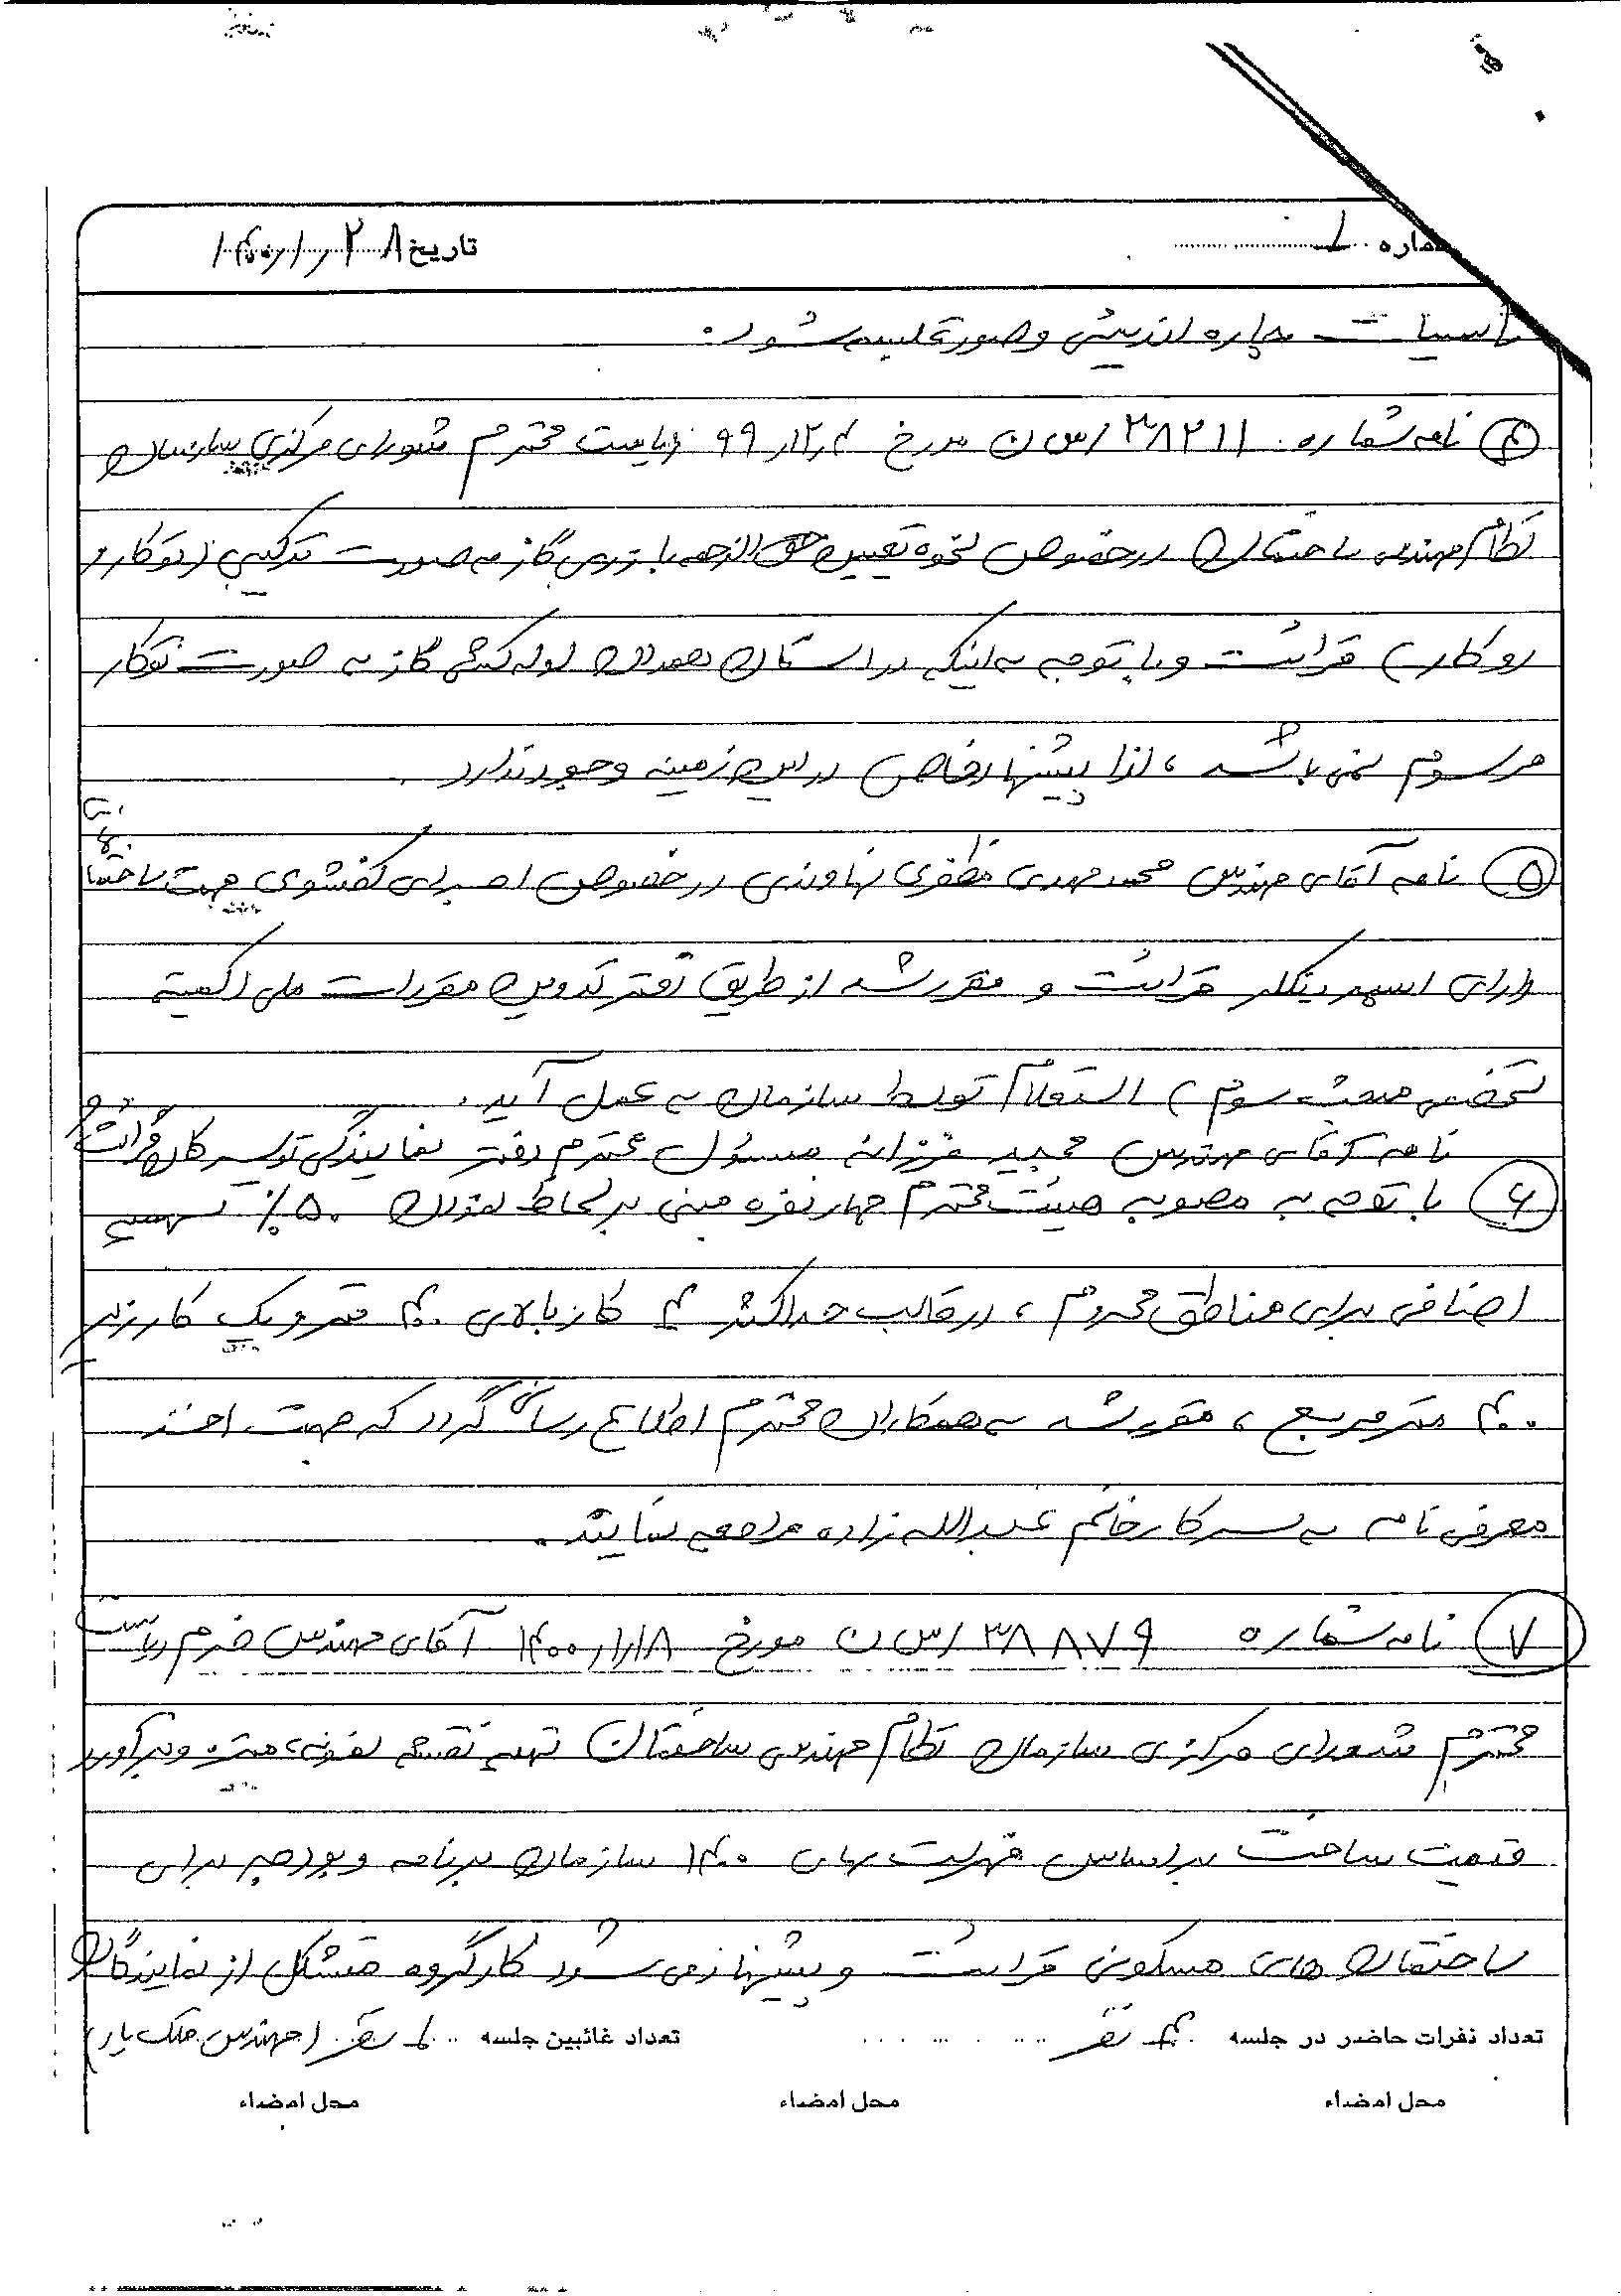 شماره ۱ تاریخ ۱۴۰۰/۱/۲۸
تاسیسات چاره اندیشی و صورتجلسه شود.
۴ نامه شماره ۳۸۲۱۱/ش ن مورخ ۹۹/۱۲/۴ ریاست محترم شورای مرکزی سازمان
نظام مهندسی ساختمان در خصوص نحوه تعیین حق الزحمه بازرسی گاز به صورت ترکیبی (توکار و
روکار) قرائت و با توجه به اینکه در استان همدان لوله کشی گاز به صورت توکار
مرسوم نمی باشد، لذا پیشنهاد خاصی در این زمینه وجود ندارد.
۵ نامه آقای مهندس محمدمهدی مظفری نهاوندی در خصوص اجرای کفشوی جهت ساختمانهای
دارای اسپرینکلر قرائت و مقرر شد از طریق دفتر تدوین مقررات ملی (کمیته
تخصصی مبحث سوم) استعلام توسط سازمان به عمل آید.
نامه آقای مهندس مجید فرزانه مسئول محترم دفتر نمایندگی تویسرکان قرائت و
۶ با توجه به مصوبه هیئت محترم چهار نفره مبنی بر لحاظ نمودن ۵۰٪ سهمیه
اضافی برای مناطق محروم، در قالب حداکثر ۴ کار بالای ۴۰۰ متر و یک کار زیر
۴۰۰ متر مربع، مقرر شد به همکاران محترم اطلاع رسانی گردد که جهت اخذ
معرفی نامه به سرکار خانم عبدالله زاده مراجعه نمایند.
۷ نامه شماره ۳۸۸۷۹/ش ن مورخ ۱۴۰۰/۱/۱۸ آقای مهندس خرم ریاست
محترم شورای مرکزی سازمان نظام مهندسی ساختمان تهیه نقشه نمونه، متره و برآورد
قیمت ساخت بر اساس فهرست بهای ۱۴۰۰ سازمان برنامه و بودجه برای
ساختمان های مسکونی قرائت و پیشنهاد می شود کارگروه متشکل از نمایندگان
تعداد نفرات حاضر در جلسه ۴ نفر تعداد غائبین جلسه ۱ نفر (مهندس ملک یار)
محل امضاء محل امضاء محل امضاء